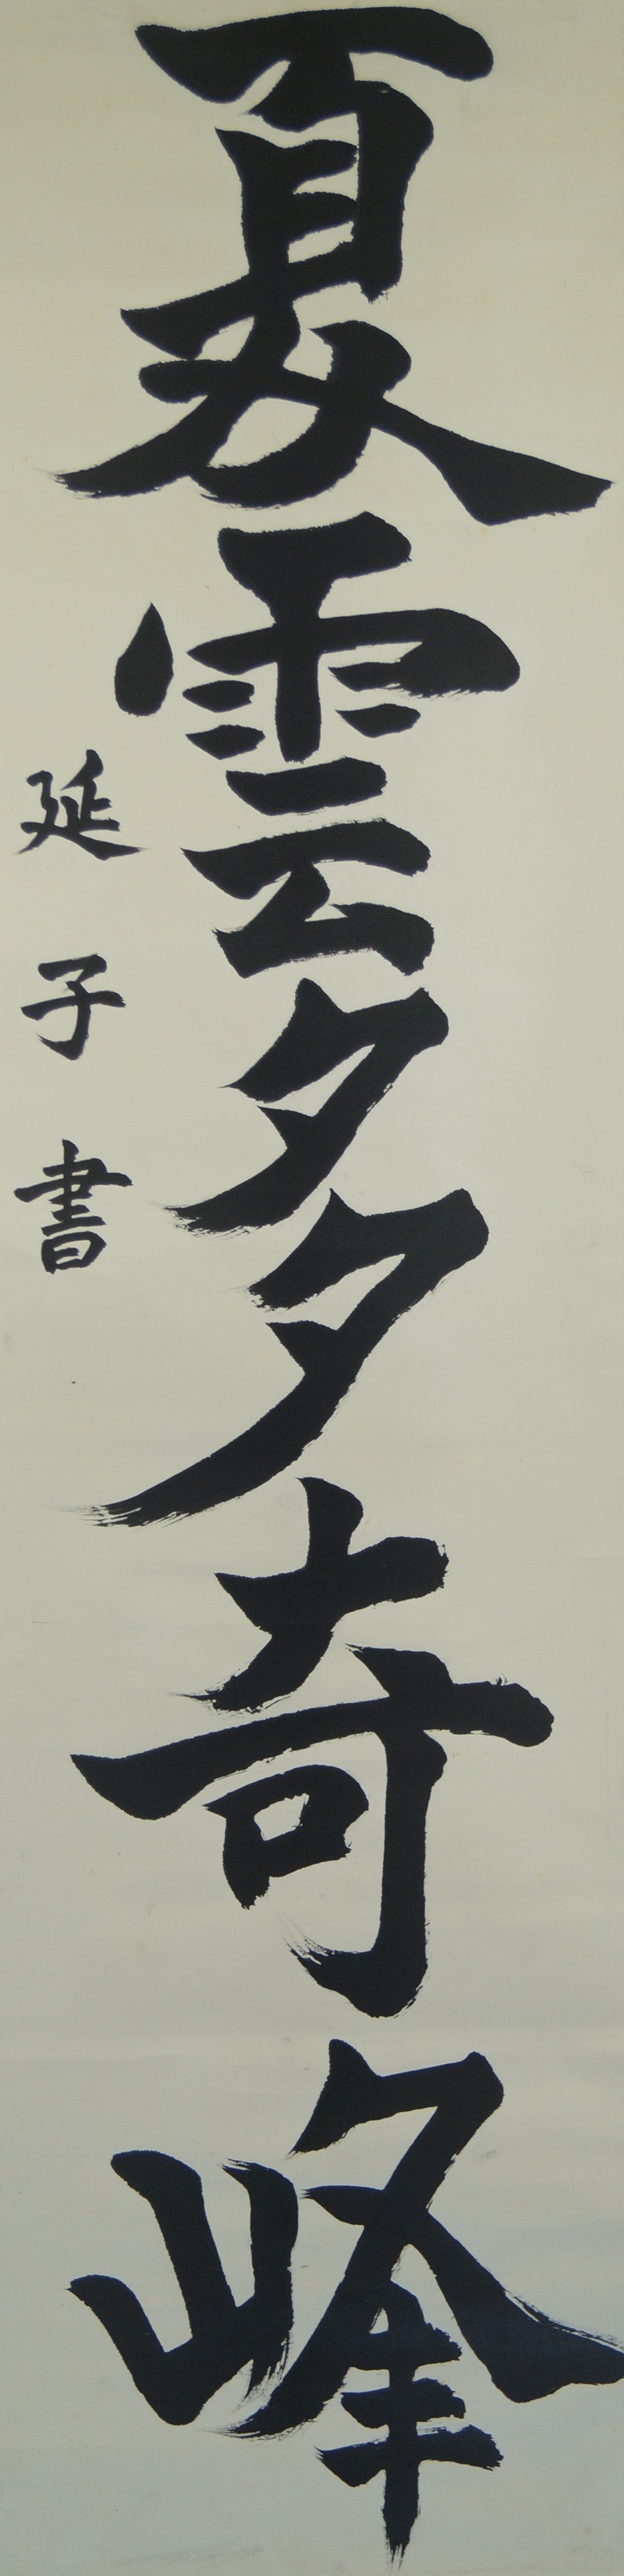 夏雲多奇峰
延子書